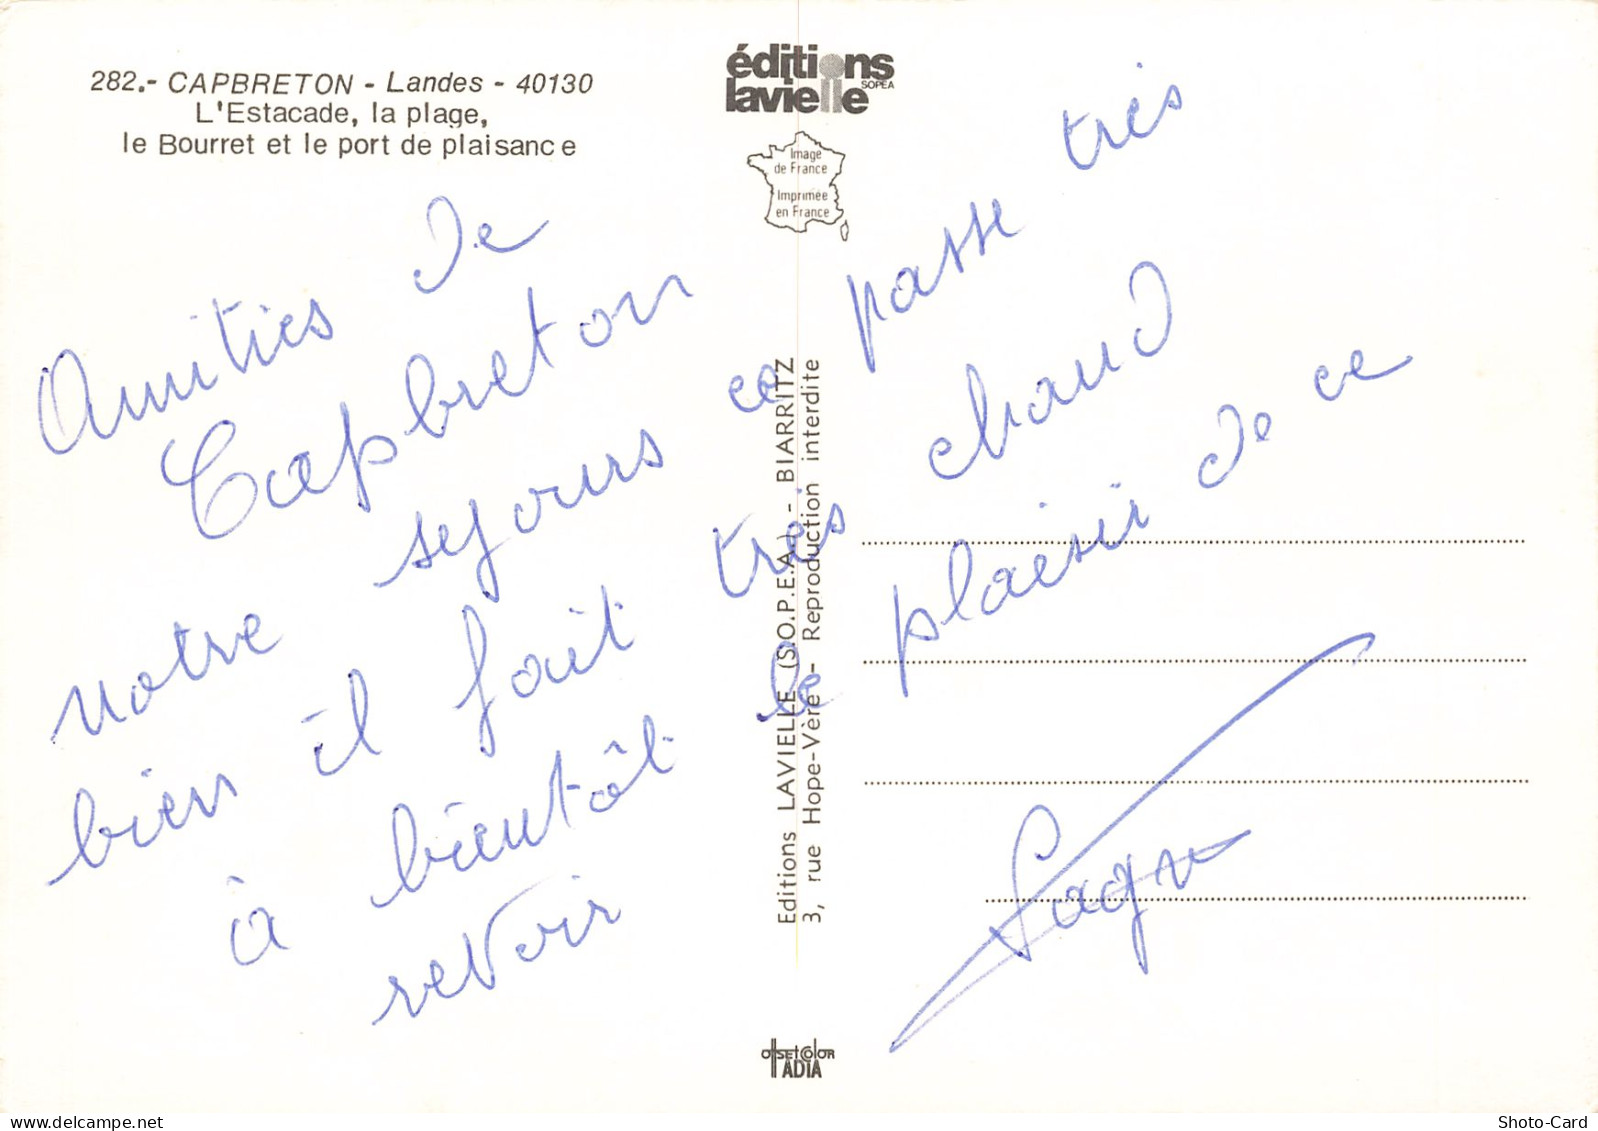 282.- CAPBRETON - Landes - 40130
L'Estacade, la plage,
le Bourret et le port de plaisance
éditions
lavielle
SOPEA
Image
de France
Imprimée
en France
Amitiés de
Capbreton
notre sejours ce passe très
bien il fait très chaud
à bientôt le plaisir de ce
revoir
Editions LAVIELLE (S.O.P.E.A.) - BIARRITZ
3, rue Hope-Vère - Reproduction interdite
OffSETCOLOR
ADIA
delcampe.net
Shoto-Card